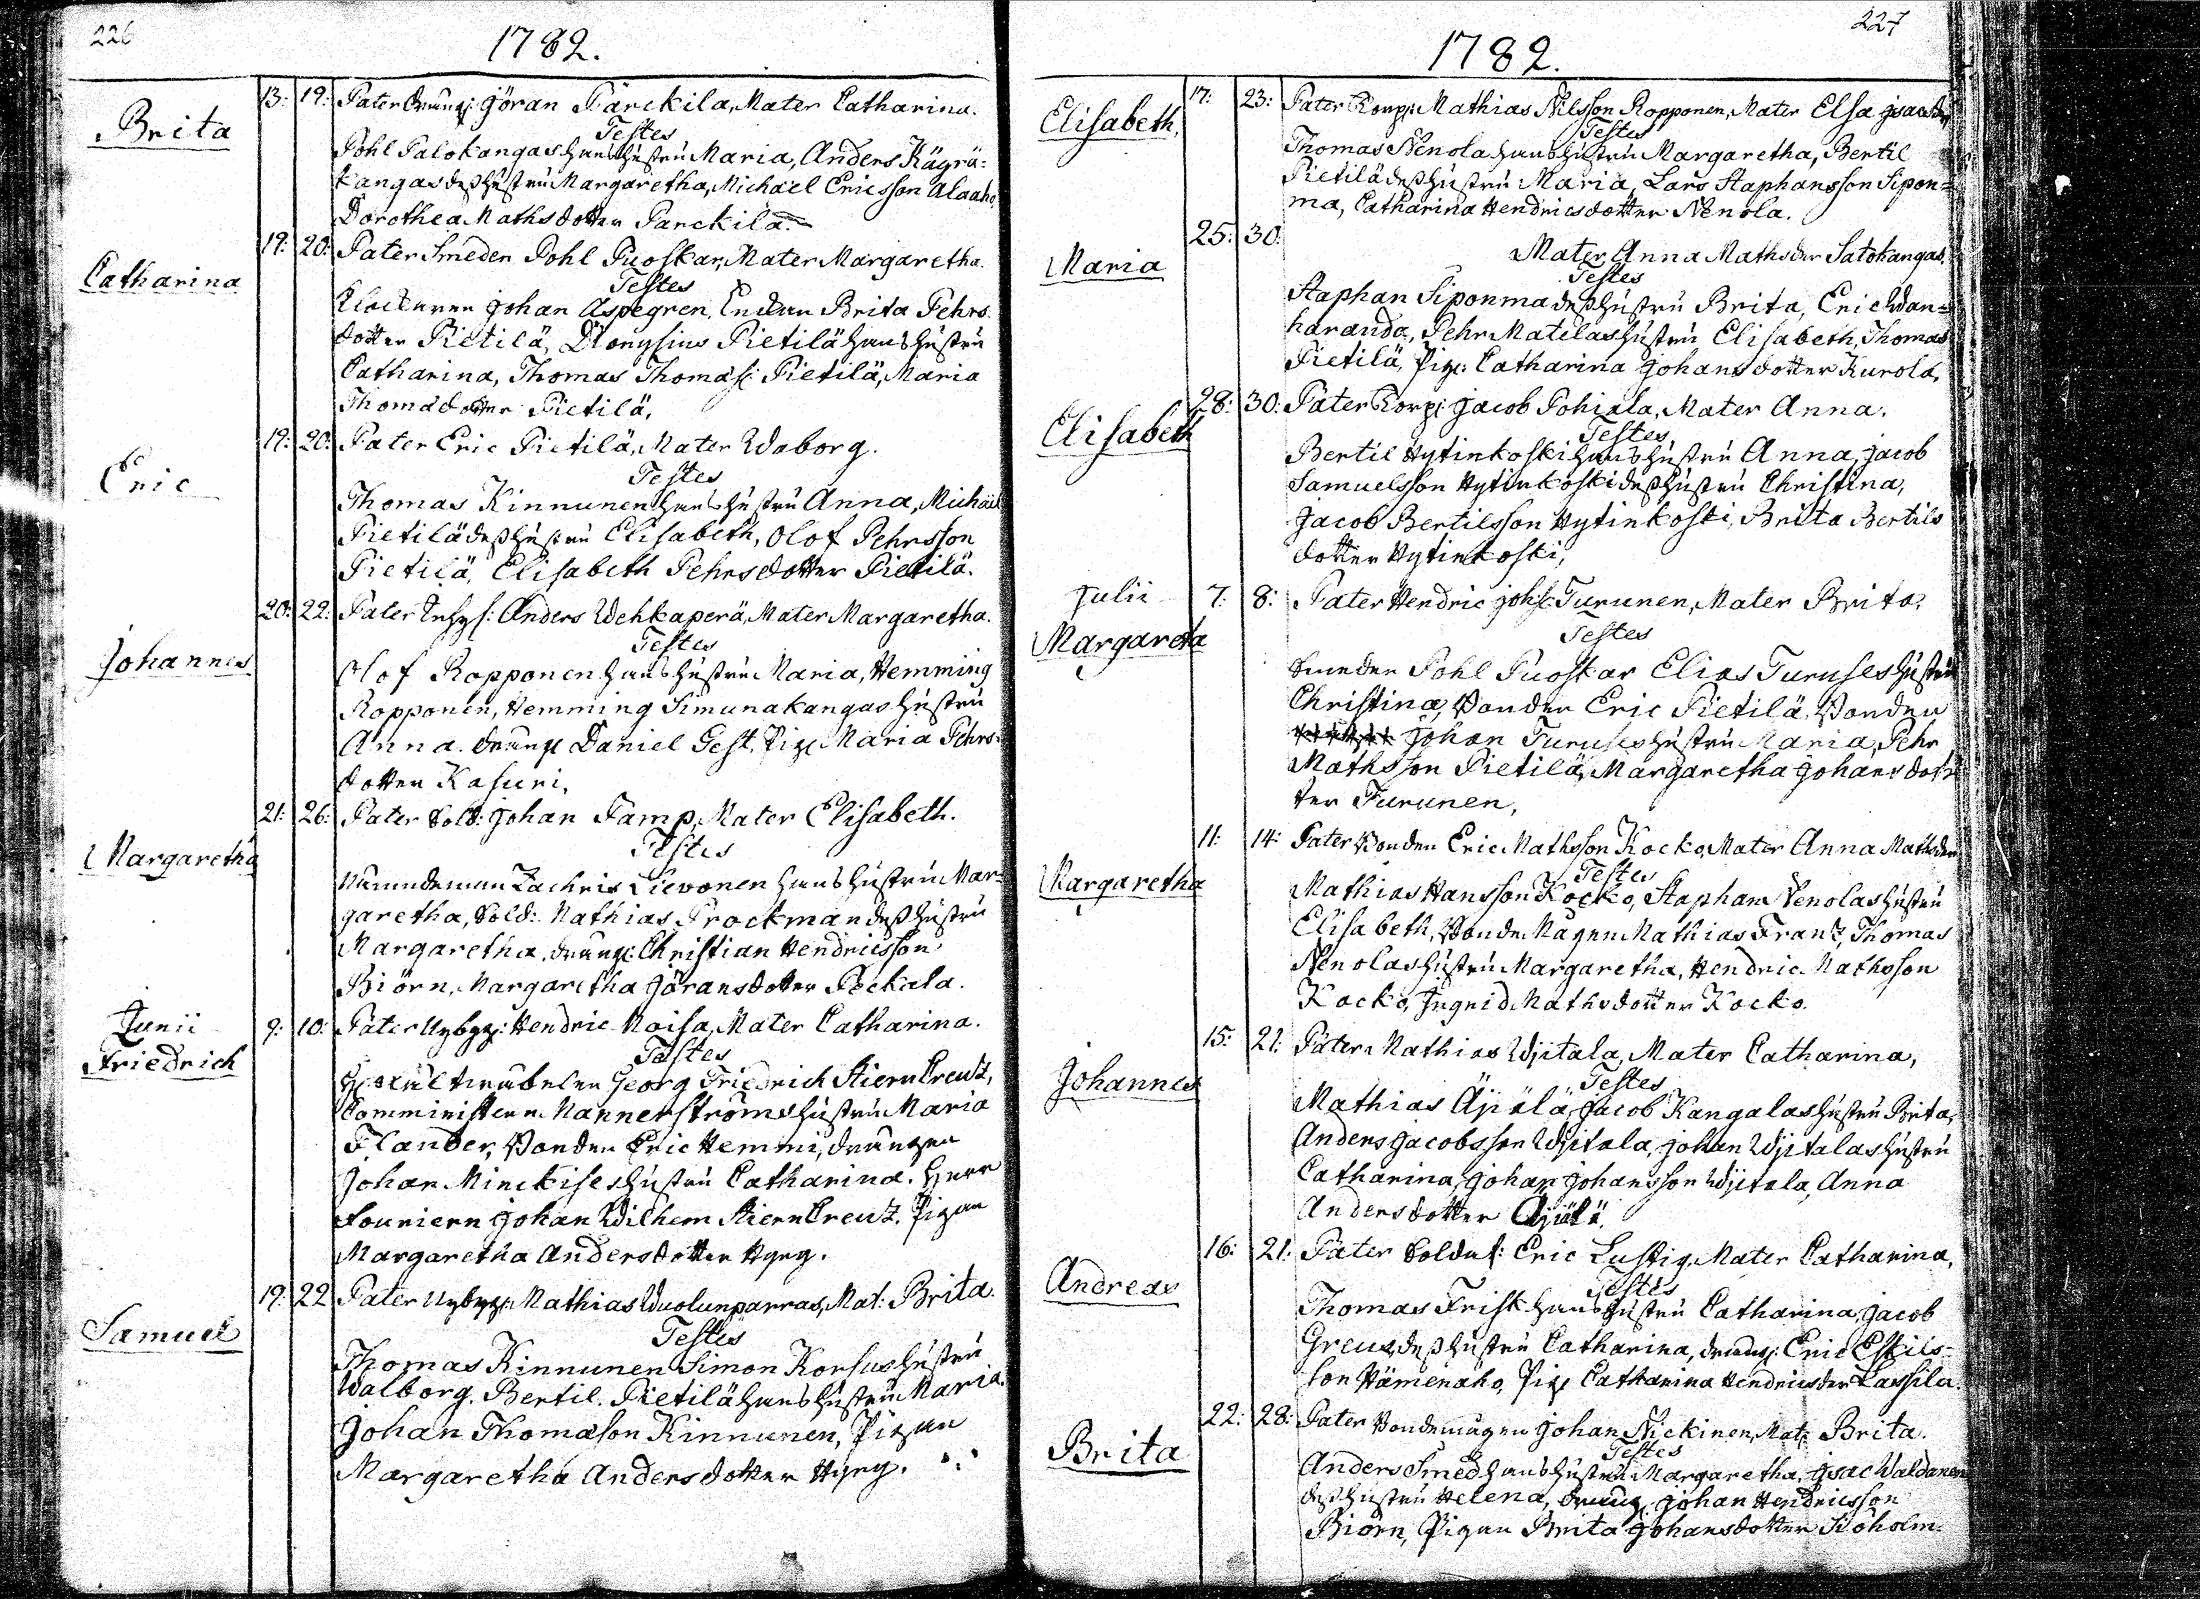 226
1782.
Brita
13: 19: Pater Dräng: Göran Parckila, Mater Catharina.
Testes
Pohl Palokangas hans hustru Maria, Anders Kägrä-
kangas dess hustru Margaretha, Michael Ericsson Alaaho,
Dorothea Mathsdotter Parckila.
Catharina
19: 20: Pater Smeden Pohl Puoskar, Mater Margaretha.
Testes
Klockaren Johan Aspegren, Enckan Brita Pehrs-
dotter Pietilä, Dionysius Pietilä hans hustru
Catharina, Thomas Thomass: Pietilä, Maria
Thomædotter Pietilä,
Eric
19: 20: Pater Eric Pietilä, Mater Waborg.
Testes
Thomas Kinnunen hans hustru Anna, Michael
Pietilä dess hustru Elisabeth, Olof Pehrsson
Pietilä, Elisabeth Pehrsdotter Pietilä.
Johannes
20: 22: Pater Inhys: Anders Wehkaperä, Mater Margaretha.
Testes
Olof Ropponen hans hustru Maria, Hemming
Ropponen, Hemming Simunakangas hustru
Anna. Dräng Daniel Gest, Pig: Maria Pehrs-
dotter Kasuri,
Margaretha
21: 26: Pater Sold: Johan Famp, Mater Elisabeth.
Testes
Nämndeman Zachris Lievonen hans hustru Mar-
garetha, Sold: Mathias Prockman dess hustru
Margaretha, Dräng: Christian Hendricsson
Biörn, Margaretha Göransdotter Peckala.
Junii
Friedrich
9: 10: Pater Nybygg: Hendric Noisa, Mater Catharina.
Testes
Georg Friedrich Stiern Creutz,
Comministern Mannerströms hustru Maria
Flander, Bonden Eric Hemmi, Drängen
Johan Minckises hustru Catharina. Herr
Fouriern Johan Wilhem Stiern Creutz. Pigan
Margaretha Andersdotter Hyry.
Samuel
19: 22 Pater Nybygg: Mathias Wuolunparras, Mat: Brita.
Testes
Thomas Kinnunen Simon Korsus hustru
Walborg. Bertil. Pietilä hans hustru Maria.
Johan Thomason Kinnunen, Pigan
Margaretha Andersdotter Hyry.
227
1782.
Elisabeth,
17: 23: Pater Korp: Mathias Nilsson Ropponen, Mater Elsa Isacsdr,
Testes
Thomas Nenola hans hustru Margaretha, Bertil
Pietilä dess hustru Maria, Lars Staphansson Sipon-
ma, Catharina Hendricsdotter Nenola.
Maria
25: 30: Mater Anna Mathsder Satokangas.
Testes
Staphan Siponma dess hustru Brita, Eric Wan-
haranda, Pehr Matilas hustru Elisabeth, Thomas
Pietilä, Pig: Catharina Johansdotter Kurola.
Elisabeth
28: 30: Pater Korp: Jacob Pohiala, Mater Anna.
Testes
Bertil Hytinkoski hans hustru Anna, Jacob
Samuelsson Hytinkoski dess hustru Christina,
Jacob Bertilsson Hytinkoski, Brita Bertils
dotter Hytinkoski,
Julii
Margareta
7: 8: Pater Hendric Johss: Turunen, Mater Brita,
Testes
Smeden Pohl Puoskar Elias Turuses hustru
Christina, Bonden Eric Pietilä. Bonden
Johan Turuses hustru Maria, Pehr
Mathsson Pietilä, Margaretha Johansdot-
ter Turunen,
Margaretha
11: 14: Pater Bonden Eric Mathsson Kocko, Mater Anna Mathsder
Testes
Mathias Hansson Kocko, Staphan Nenolas hustru
Elisabeth, Bonde Magen Mathias Frantz, Thomas
Nenolas hustru Margaretha, Hendric Mathsson
Kocko, Ingrid Mathsdotter Kocko.
Johannes
15: 21: Pater Mathias Wjitala, Mater Catharina,
Testes
Mathias Äjälä, Jacob Kangalas hustru Brita,
Anders Jacobsson Wjitala, Johan Wjitalas hustru
Catharina, Johan Johansson Wjitala, Anna
Andersdotter Äjälä.
Andreas
16: 21: Pater Soldat: Eric Lustig, Mater Catharina,
Testes
Thomas Frisk hans hustru Catharina, Jacob
Greus dess hustru Catharina, Dräng: Eric Eskils-
son Hämenaho, Pig: Catharina Hendricsder Lassila.
Brita
22: 28: Pater Bondemågen Johan Nickinen, Mat: Brita.
Testes
Anders Smed hans hustru Margaretha, Isac Waldanen
dess hustru Helena, Dräng Johan Hendricsson
Biörn, Pigan Brita Johansdotter Siöholm-